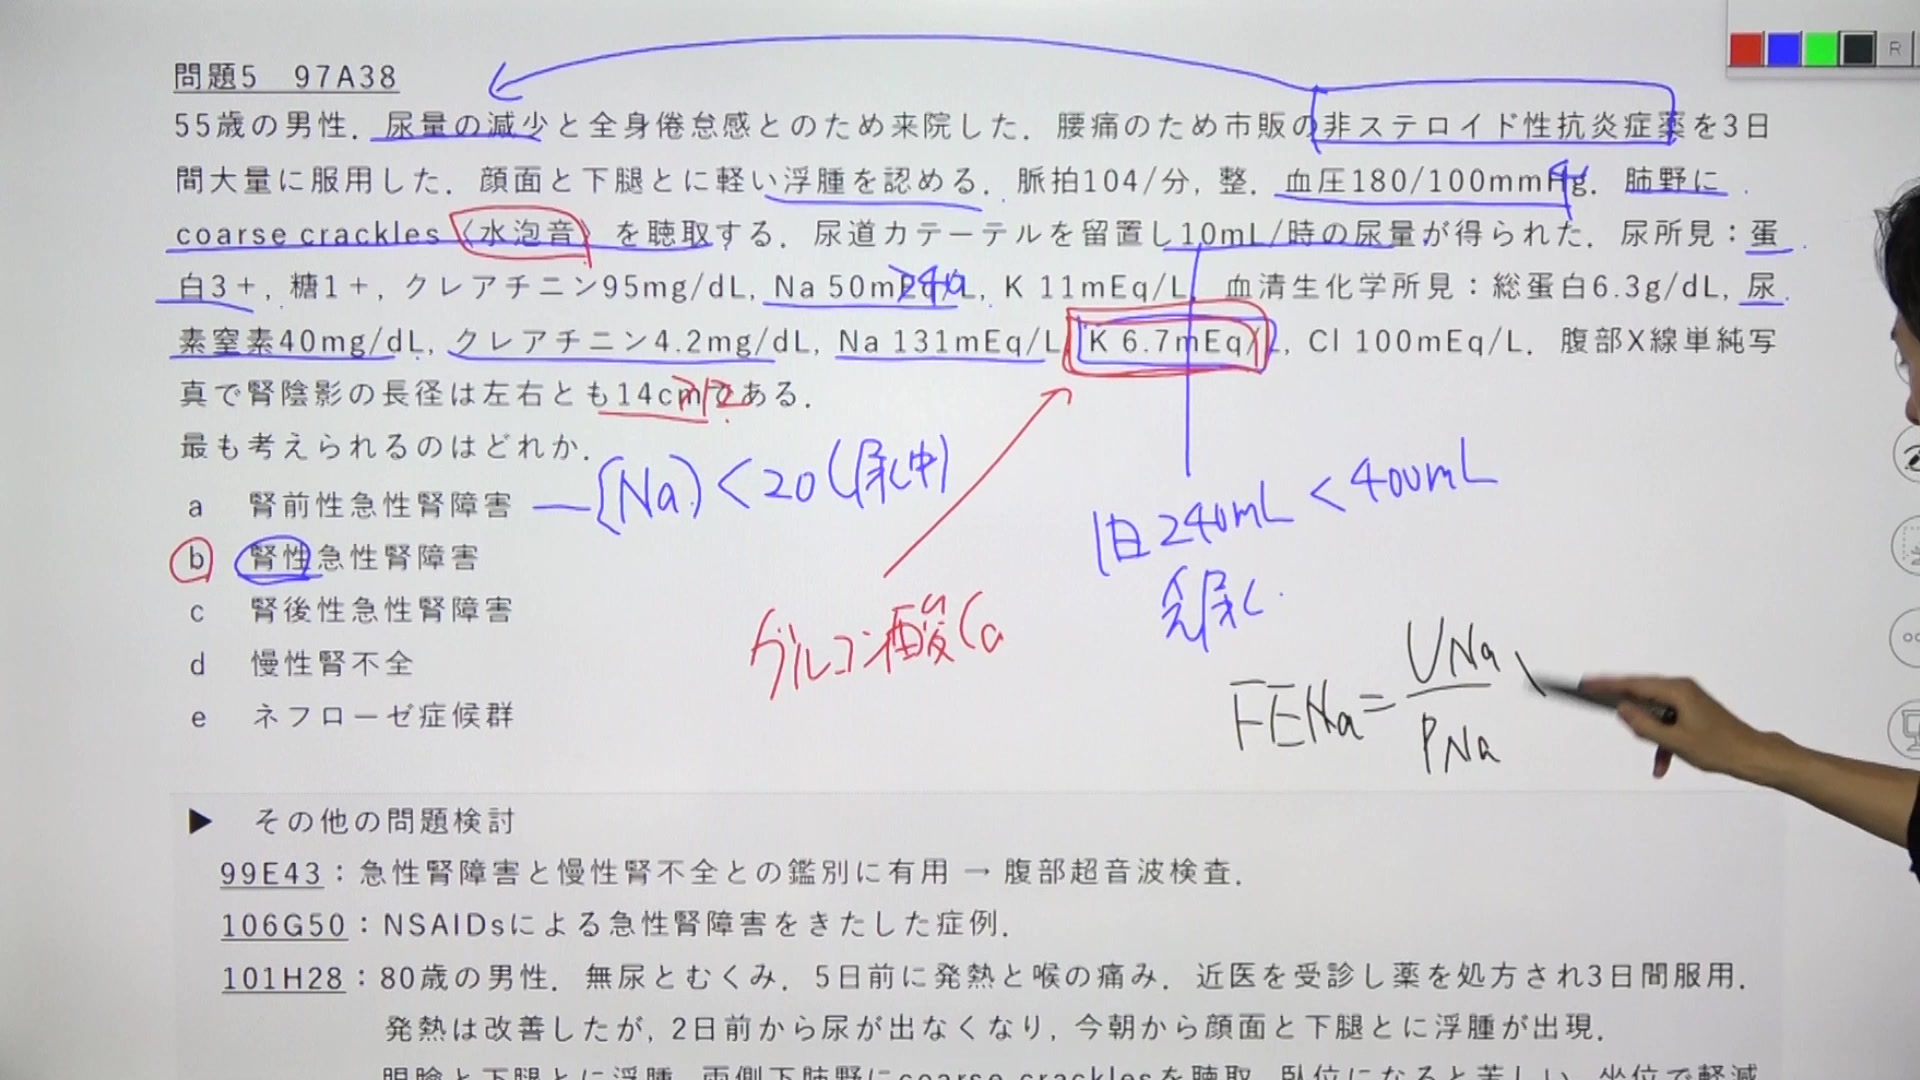 R
問題5 97A38
55歳の男性．尿量の減少と全身倦怠感とのため来院した．腰痛のため市販の非ステロイド性抗炎症薬を3日
間大量に服用した．顔面と下腿とに軽い浮腫を認める．脈拍104/分，整．血圧180/100mmHg．肺野に
coarse crackles〈水泡音〉を聴取する．尿道カテーテルを留置し10mL/時の尿量が得られた．尿所見：蛋
白3＋，糖1＋，クレアチニン95mg/dL, Na 50mEq/L, K 11mEq/L．血清生化学所見：総蛋白6.3g/dL, 尿
>40
素窒素40mg/dL, クレアチニン4.2mg/dL, Na 131mEq/L, K 6.7mEq/L, Cl 100mEq/L．腹部X線単純写
真で腎陰影の長径は左右とも14cmである．
>12
最も考えられるのはどれか．
a 腎前性急性腎障害 ― [Na] < 20 (尿中)
b 腎性急性腎障害
c 腎後性急性腎障害
d 慢性腎不全
e ネフローゼ症候群
1日240mL < 400mL
乏尿
グルコン酸Ca
FENa = UNa
PNa
▶ その他の問題検討
99E43：急性腎障害と慢性腎不全との鑑別に有用 → 腹部超音波検査．
106G50：NSAIDsによる急性腎障害をきたした症例．
101H28：80歳の男性．無尿とむくみ．5日前に発熱と喉の痛み．近医を受診し薬を処方され3日間服用．
発熱は改善したが，2日前から尿が出なくなり，今朝から顔面と下腿とに浮腫が出現．
眼瞼と下腿とに浮腫．両側下肺野にcoarse cracklesを聴取．臥位になると苦しい．坐位で軽減